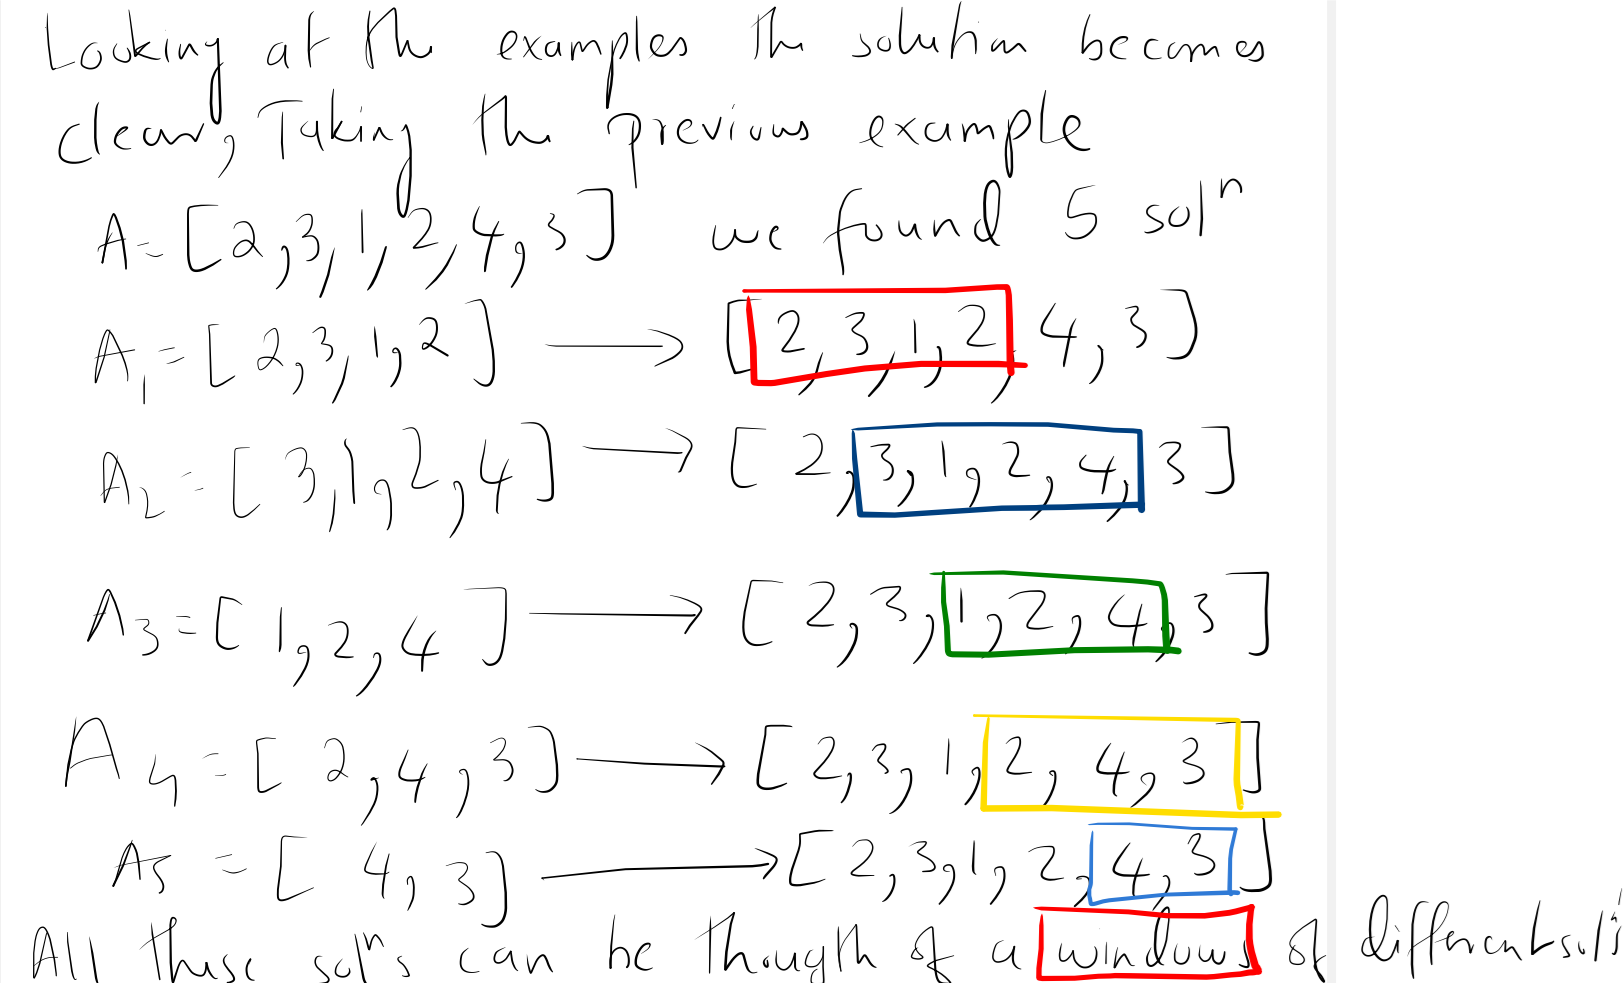 Looking at the examples the solution becomes
clear, Taking the previous example
A = [2,3,1,2,4,3] we found 5 solⁿ
A₁ = [2,3,1,2] → [2,3,1,2,4,3]
A₂ = [3,1,2,4] → [2,3,1,2,4,3]
A₃ = [1,2,4] → [2,3,1,2,4,3]
A₄ = [2,4,3] → [2,3,1,2,4,3]
A₅ = [4,3] → [2,3,1,2,4,3]
All these solⁿs can be thougth of a windows of different solⁿs